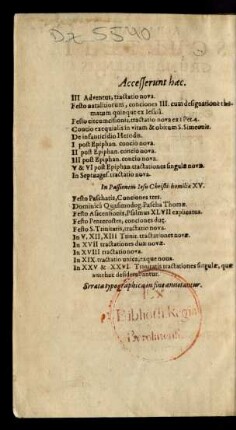 Dz 5540
Accesserunt hæc.
III Adventus, tractatio nova.
Festo natalitiorum, conciones III. cum designatione thematum quinque ex Iesaia.
Festo circumcisionis, tractatio nova ex 1 Pet. 4.
Concio exequialis in vitam & obitum S. Simeonis.
De infanticidio Herodis.
I post Epiphan. concio nova.
II post Epiphan. concio nova.
III post Epiphan. concio nova.
V & VI post Epiphan. tractationes singulæ novæ.
In Septuages. tractatio nova.
In Passionem Iesu Christi homiliæ XV.
Festo Paschatis, Conciones tres.
Dominica Quasimodog. Pascha Thomæ.
Festo Ascensionis, Psalmus XLVII explicatus.
Festo Pentecostes, conciones duæ.
Festo S. Trinitatis, tractatio nova.
In V, XII, XIII Trinit. tractationes novæ.
In XVII tractationes duæ novæ.
In XVIII tractatio nova.
In XIX tractatio unica, eaque nova.
In XXV & XXVI. Trinitatis tractationes singulæ, quæ
antehac desiderabantur.
Errata typographica in fine annotantur.
EX
Bibliotheca Regia
Berolinensi.